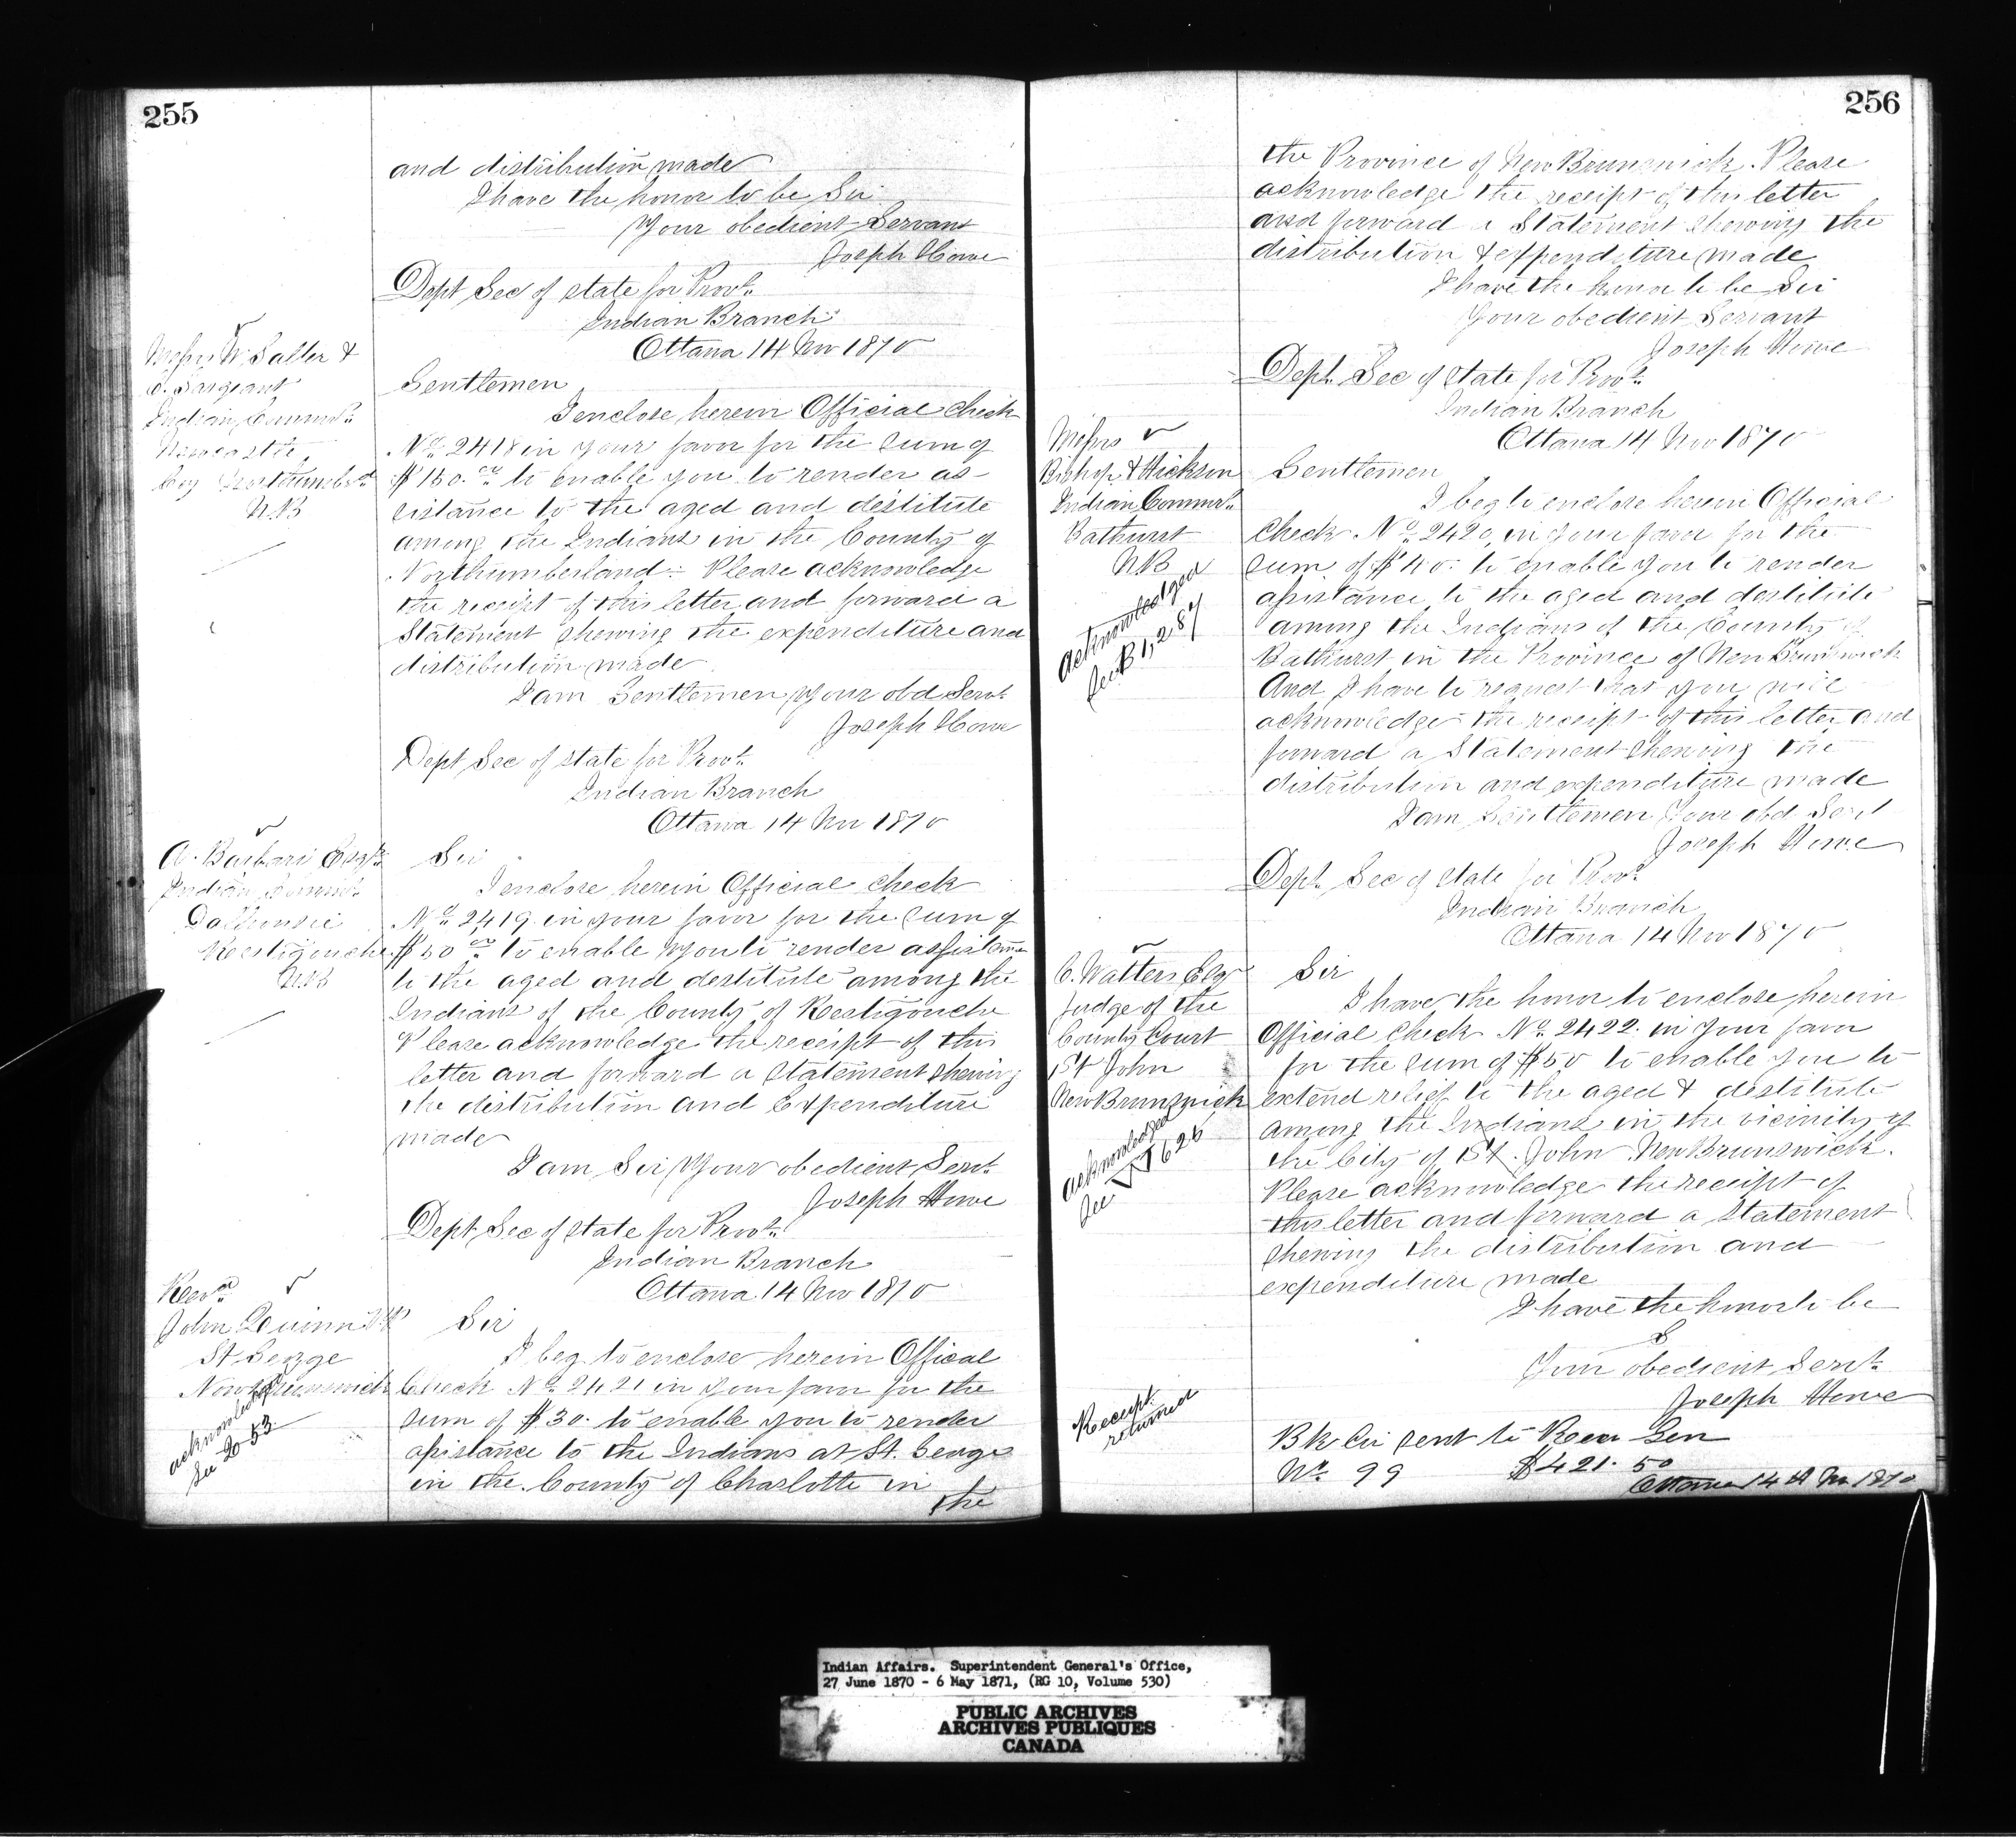 255
and distribution made
I have the honor to be Sir
Your obedient Servant
Joseph Howe
Dept Sec of state for Provs.
Indian Branch
Ottawa 14 Nov 1870
Messrs W. Salter &
C. Sargeant
Indian Commrs.
Newcastle
Coy Northumberd
N.B
Gentlemen
I enclose herein Official Check
No. 2418 in your favor for the sum of
$150.00 to enable you to render as-
sistance to the aged and destitute
among the Indians in the County of
Northumberland. Please acknowledge
the receipt of this letter and forward a
Statement shewing the expenditure and
distribution made
I am Gentlemen your obd Servt.
Joseph Howe
Dept Sec of state for Provs.
Indian Branch
Ottawa 14 Nov 1870
A. Barbari Esqr.
Indian Commr.
Dalhousie
Restigouche
N.B
Sir
I enclose herein Official check
No. 2419 in your favor for the sum of
$50.00 to enable you to render assistance
to the aged and destitute among the
Indians of the County of Restigouche
Please acknowledge the receipt of this
letter and forward a statement shewing
the distribution and Expenditure
made
I am Sir Your obedient Servt.
Joseph Howe
Dept Sec of state for Provs.
Indian Branch
Ottawa 14 Nov 1870
Revd.
John Quinn
St. George
New Brunswick
acknowledged
See 20-53
Sir
I beg to enclose herein Offical
Check No. 2421 in your favor for the
sum of $30. to enable you to render
assistance to the Indians at St. George
in the County of Charlotte in
the
256
the Province of New Brunswick. Please
acknowledge the receipt of this letter
and forward a Statement shewing the
distribution & expenditure made
I have the honor to be Sir
Your obedient Servant
Joseph Howe
Dept. Sec of state for Provs.
Indian Branch
Ottawa 14 Nov 1870
Messrs
Bishop & Hickson
Indian Commrs.
Bathurst
NB
Acknowledged
See B 1,287
Gentlemen
I beg to enclose herein Official
Check No. 2420, in your favor for the
sum of $40. to enable you to render
assistance to the aged and destitute
among the Indians of the County of
Bathurst in the Province of New Brunswick
And I have to request that you will
acknowledge the receipt of this letter and
forward a Statement shewing the
distribution and expenditure made
I am Gentlemen Your obd Servt
Joseph Howe
Dept. Sec of state for Provs.
Indian Branch
Ottawa 14 Nov 1870
C. Watters Esq
Judge of the
County Court
St John
New Brunswick
Acknowledged
See W 626
Sir
I have the honor to enclose herein
Official Check No. 2422. in your favor
for the sum of $50 to enable you to
extend relief to the aged & destitute
among the Indians in the vicinity of
the City of St. John New Brunswick.
Please acknowledge the receipt of
this letter and forward a statement
shewing the distribution and
expenditure made
I have the honor to be
S
Your obedient Servt.
Joseph Howe
Receipt
returned
Bk Cer sent to Recr Gen
No. 99 $421.50
Ottawa 14th Nov 1870
Indian Affairs. Superintendent General's Office,
27 June 1870 - 6 May 1871, (RG 10, Volume 530)
PUBLIC ARCHIVES
ARCHIVES PUBLIQUES
CANADA